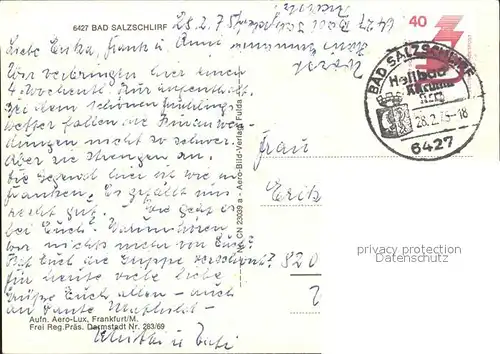 6427 BAD SALZSCHLIRF
28.2.75
40
BAD SALZSCHLIRF
Heilbad
28.2.75-18
6427
Liebe Erika, Frank u. Anne
Wir verbringen hier einen
4-wöchentl. Kuraufenthalt.
Bei dem schönen Frühlings-
wetter fallen die Kuranwen-
dungen nicht so schwer.
Aber sie strengen an.
Die Gegend hier ist wie in
Franken. Es gefällt uns
recht gut. Wie geht es
bei Euch? Warum hören
wir nichts mehr von Euch?
Hat Euch die Grippe verschont?
für heute viele liebe
Grüße Euch allen – auch
an Tante
Frau
820
CN 23039 a - Aero-Bild-Verlag Fulda
privacy protection
Datenschutz
Aufn. Aero-Lux, Frankfurt/M.
Frei Reg.Präs. Darmstadt Nr. 283/69